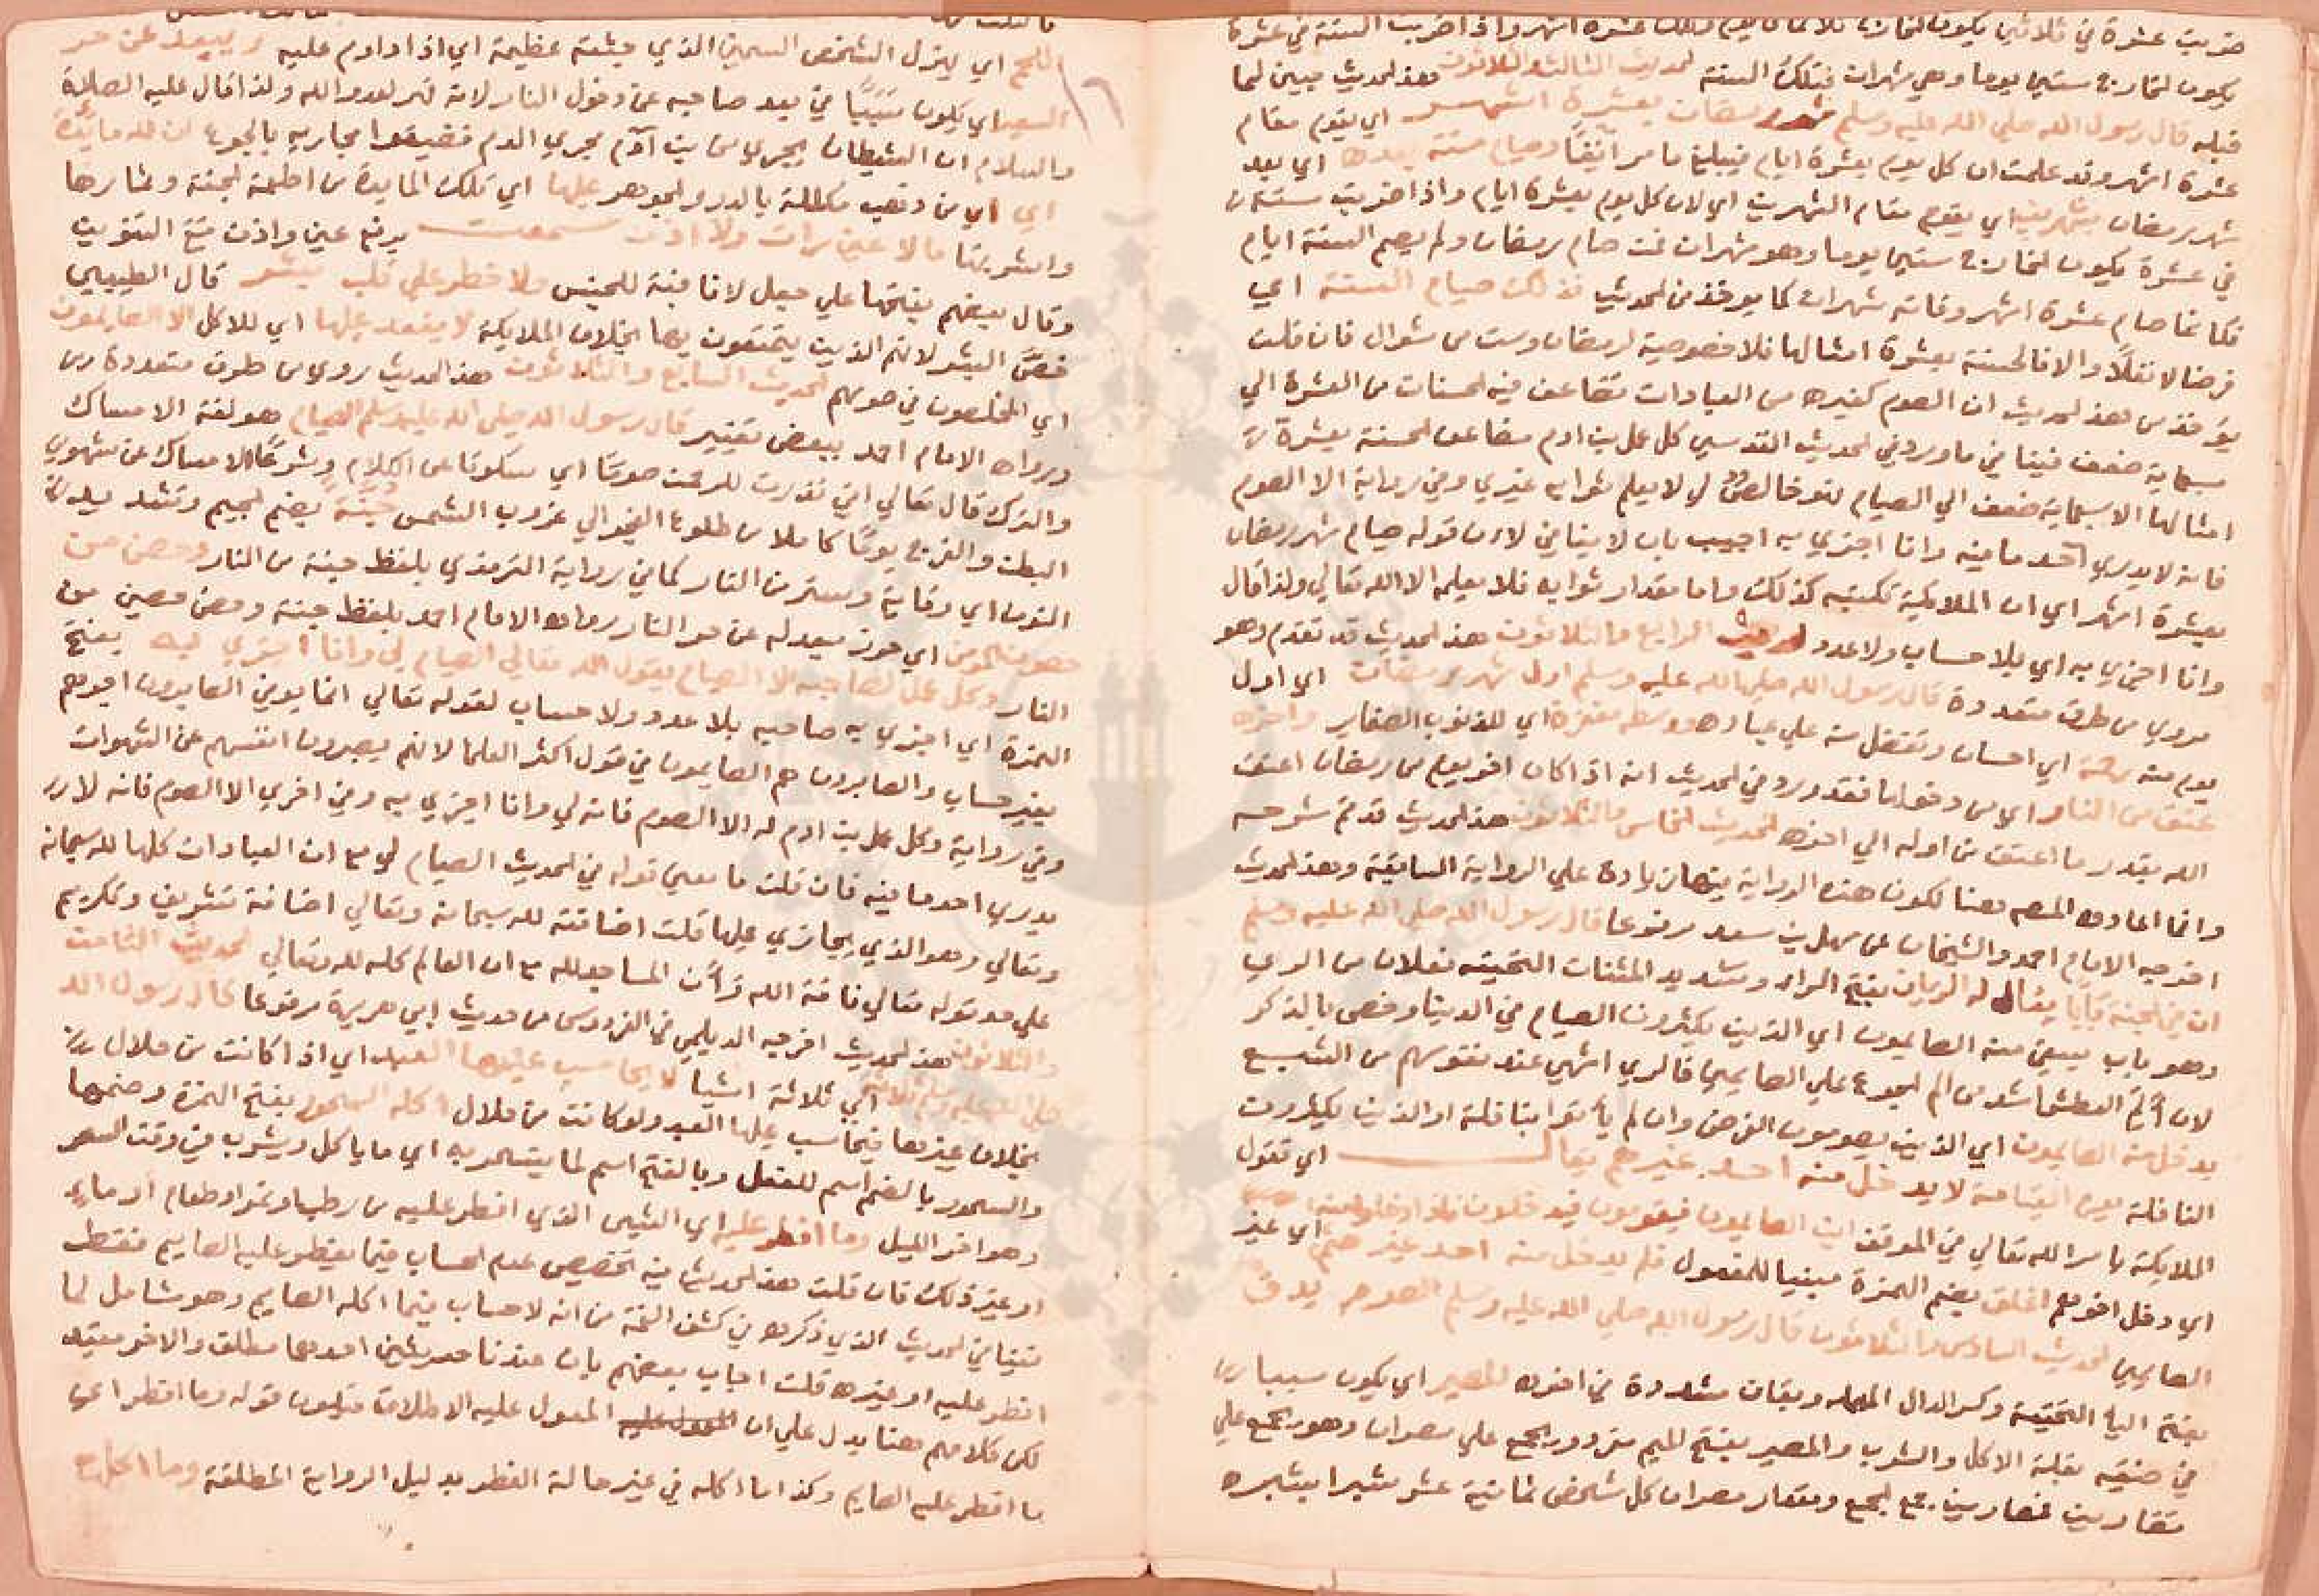 ضربت عشرة في ثلاثين يكون الخارج ثلاثماية يوم وذلك عشرة اشهر واذا ضربت الستة في عشرة
يكون الخارج ستين يوما وهي شهران فتلك السنة الحديث الثالث والثلاثون هذا الحديث مبين لما
قبله قال رسول الله صلي الله عليه وسلم شهر رمضان بعشرة اشهر اي يقوم مقام
عشرة اشهر وقد علمت ان كل يوم بعشرة ايام فيبلغ ما مر آنفًا وصيام ستة بعدها اي بعد
شهر رمضان بشهرين اي يقوم مقام الشهرين اي لان كل يوم بعشرة ايام واذا ضربت ستة
في عشرة يكون الخارج ستين يوما وهو شهران فمن صام رمضان ولم يصم الستة ايام
فكانما صام عشرة اشهر وفاته شهران كما يوخذ من الحديث فذلك صيام السنة اي
فرضا لا نفلًا والا فالحسنة بعشرة امثالها فلا خصوصية لرمضان وست من شوال فان قلت
يؤخذ من هذا الحديث ان الصوم كغيره من العبادات تضاعف فيه الحسنات من العشرة الي
سبعماية ضعف فينافي ما ورد في الحديث القدسي كل عمل بن ادم مضاعف الحسنة بعشرة
امثالها الا سبعماية ضعف الي الصيام لي لا يعلم ثوابه غيري وفي رواية الا الصوم
فانه لا يدري احد ما فيه وانا اجزي به اجيب بان لا ينافي لان قوله صيام شهر رمضان
بعشرة اشهر اي ان الملايكة تكتبه كذلك واما مقدار ثوابه فلا يعلمه الا الله تعالي ولذا قال
وانا اجزي به اي بلا حساب ولا عدد الحديث الرابع والثلاثون هذا الحديث قد تقدم وهو
مروي من طرق متعددة قال رسول الله صلي الله عليه وسلم اول شهر رمضان اي اول
يوم منه رحمة اي احسان وتفضل منه علي عباده ووسطه مغفرة اي للذنوب الصغاير واخره
عتق من النار اي من دخولها فقد ورد في الحديث انه اذا كان اخر يوم من رمضان اعتق
الله بقدر ما اعتق من اوله الي اخره الحديث الخامس والثلاثون هذا الحديث قد تم شرحه
وانما اعاده المص هنا لكون هذه الرواية فيها زيادة علي الرواية السابقة وهذا الحديث
اخرجه الامام احمد والشيخان عن سهل بن سعد مرفوعا قال رسول الله صلي الله عليه وسلم
ان في الجنة بابا يقال له الريان بفتح الراء وتشديد المثنات التحتيته فعلان من الري
وهو باب يسقي منه الصايمون اي الذين يكثرون الصيام في الدنيا وخص بالذكر
لان ألم العطش اشد من الم الجوع علي الصايمين فالري اشهي عند نفوسهم من الشبع
يدخل منه الصايمون اي الذين يصومون الفرض وان لم يأتوا بنافلة او الذين يكثرون
النافلة يوم القيامة لا يدخل منه احد غيرهم يقال اي تقول
الملايكة بامر الله تعالي في الموقف اين الصايمون فيقومون فيدخلون فاذا دخلوا
اي دخل اخرهم اغلق بضم الهمزة مبنيا للمفعول فلم يدخل منه احد غيرهم اي غير
الصايمين الحديث السادس والثلاثون قال رسول الله صلي الله عليه وسلم الصوم يدق
بفتح الياء التحتية وكسر الدال المهملة وبقاف مشددة في اخره المصير اي يكون سببا
في ضيقه بقلة الاكل والشرب والمصير بفتح الميم ويجمع علي مصران وهو يجمع علي
مصارين جمع الجمع ومقدار مصران كل شخص ثمانية عشر شبرا بشبره
اللحم اي يهزل الشخص السمين الذي جثته عظيمة اي اذا داوم عليه ويبعد عن حر
السعير اي يكون سَبَبًا في بعد صاحبه عن دخول النار لانه قهر لعدو الله ولذا قال عليه الصلاة
والسلام ان الشيطان يجري من بن آدم مجري الدم فضيقوا مجاريه بالجوع ان لله مايدة
اي من ذهب مكللة بالدر والجوهر عليها اي تلك المايدة من اطعمة الجنة وثمارها
واشربتها مالا عين رات ولا اذن سمعت برفع عين واذن مع التنوين
وقال بعضهم بفتحها علي جعل لا نافية للجنس ولا خطر علي قلب بشر قال الطيبي
خصَّ البشر لانهم الذين ينتفعون بها بخلاف الملايكة لا يقعد عليها اي للاكل الا الصايمون
اي المخلصون في صومهم الحديث السابع والثلاثون هذا الحديث مروي من طرق متعددة
ورواه الامام احمد ببعض تغيير قال رسول الله صلي الله عليه وسلم الصيام هو لغة الامساك
والترك قال تعالي اني نذرت للرحمن صومًا اي سكوتا عن الكلام وشرعًا الامساك عن شهوتي
البطن والفرج يومًا كاملا من طلوع الفجر الي غروب الشمس جُنَّة بضم الجيم وتشديد
النون اي وقاية وستر من النار كما في رواية الترمذي بلفظ جنة من النار وحصن من
حصون المومن اي حرز مبعد له عن حر النار ورواه الامام احمد بلفظ جنة وحصن حصين من
النار وكل عمل لصاحبه الا الصيام يقول الله تعالي الصيام لي وانا اجزي به بفتح
الهمزة اي اجزي به صاحبه بلا عدد ولا حساب لقوله تعالي انما يوفي الصابرون اجرهم
بغير حساب والصابرون هم الصايمون في قول اكثر العلما لانهم يصبرون انفسهم عن الشهوات
وفي رواية وكل عمل بن ادم له الا الصوم فانه لي وانا اجزي به وفي اخري الا الصوم فانه لا
يدري احد ما فيه فان قلت ما معني قوله في الحديث الصيام لي مع ان العبادات كلها لله سبحانه
وتعالي وهو الذي يجازي عليها قلت اضافته لله سبحانه وتعالي اضافة تشريف وتكريم
علي حد قوله تعالي ناقة الله وأن المساجد لله مع ان العالم كله لله تعالي الحديث الثامن
والثلاثون هذا الحديث اخرجه الديلمي في الفردوس من حديث ابي هريرة مرفوعا قال رسول الله
صلي الله عليه وسلم ثلاثة اي ثلاثة اشيا لا يحاسب عليها العبد اي اذا كانت من حلال
بخلاف غيرها فيحاسب عليها العبد ولو كانت من حلال اكله السحور بفتح الهمزة وضمها
والسحور بالضم اسم للفعل وبالفتح اسم لما يتسحر به اي ما ياكل ويشرب في وقت السحر
وهو اخر الليل وما افطر عليه اي الشيء الذي افطر عليه من رطب او تمر او طعام او ماء
او غير ذلك فان قلت هذا الحديث فيه تخصيص عدم الحساب فيما يفطر عليه الصايم فقط
فينافي الحديث الذي ذكره في كشف الغمة من انه لا حساب فيما اكله الصايم وهو شامل لما
افطر عليه او غيره قلت اجاب بعضهم بان عندنا حديثين احدهما مطلق والاخر مقيد
لكن كلامهم هنا يدل علي ان المعول عليه الاطلاق فيكون قوله وما افطر اي
ما افطر عليه الصايم وكذا ما اكله في غير حالة الفطر بدليل الرواية المطلقة وما اكل مع